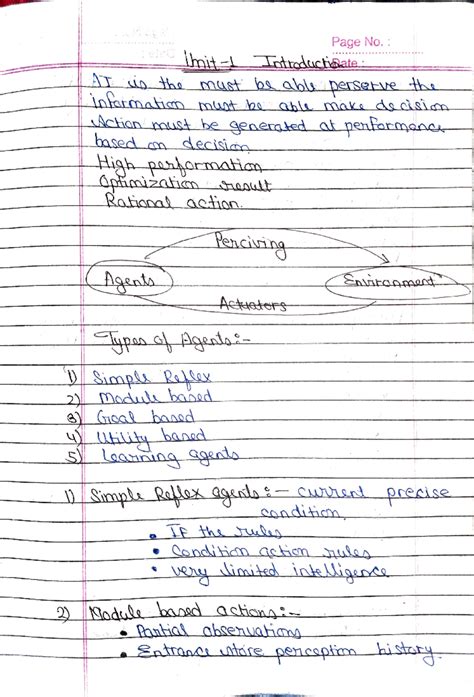 Page No. :
Date :
Unit-1 Introduction
AI is the must be able perserve the
information must be able make decision
Action must be generated at performence
based on decision
High performation
Optimization result
Rational action.
Perciving
Agents
Environment
Actuators
Types of Agents:-
1) Simple Reflex
2) Module based
3) Goal based
4) Utility based
5) Learning agents
1) Simple Reflex agents :- current precise
condition.
• IF the rules
• Condition action rules
• very limited intelligence
2) Module based actions:-
• Partial observations
• Entrance store perception history.